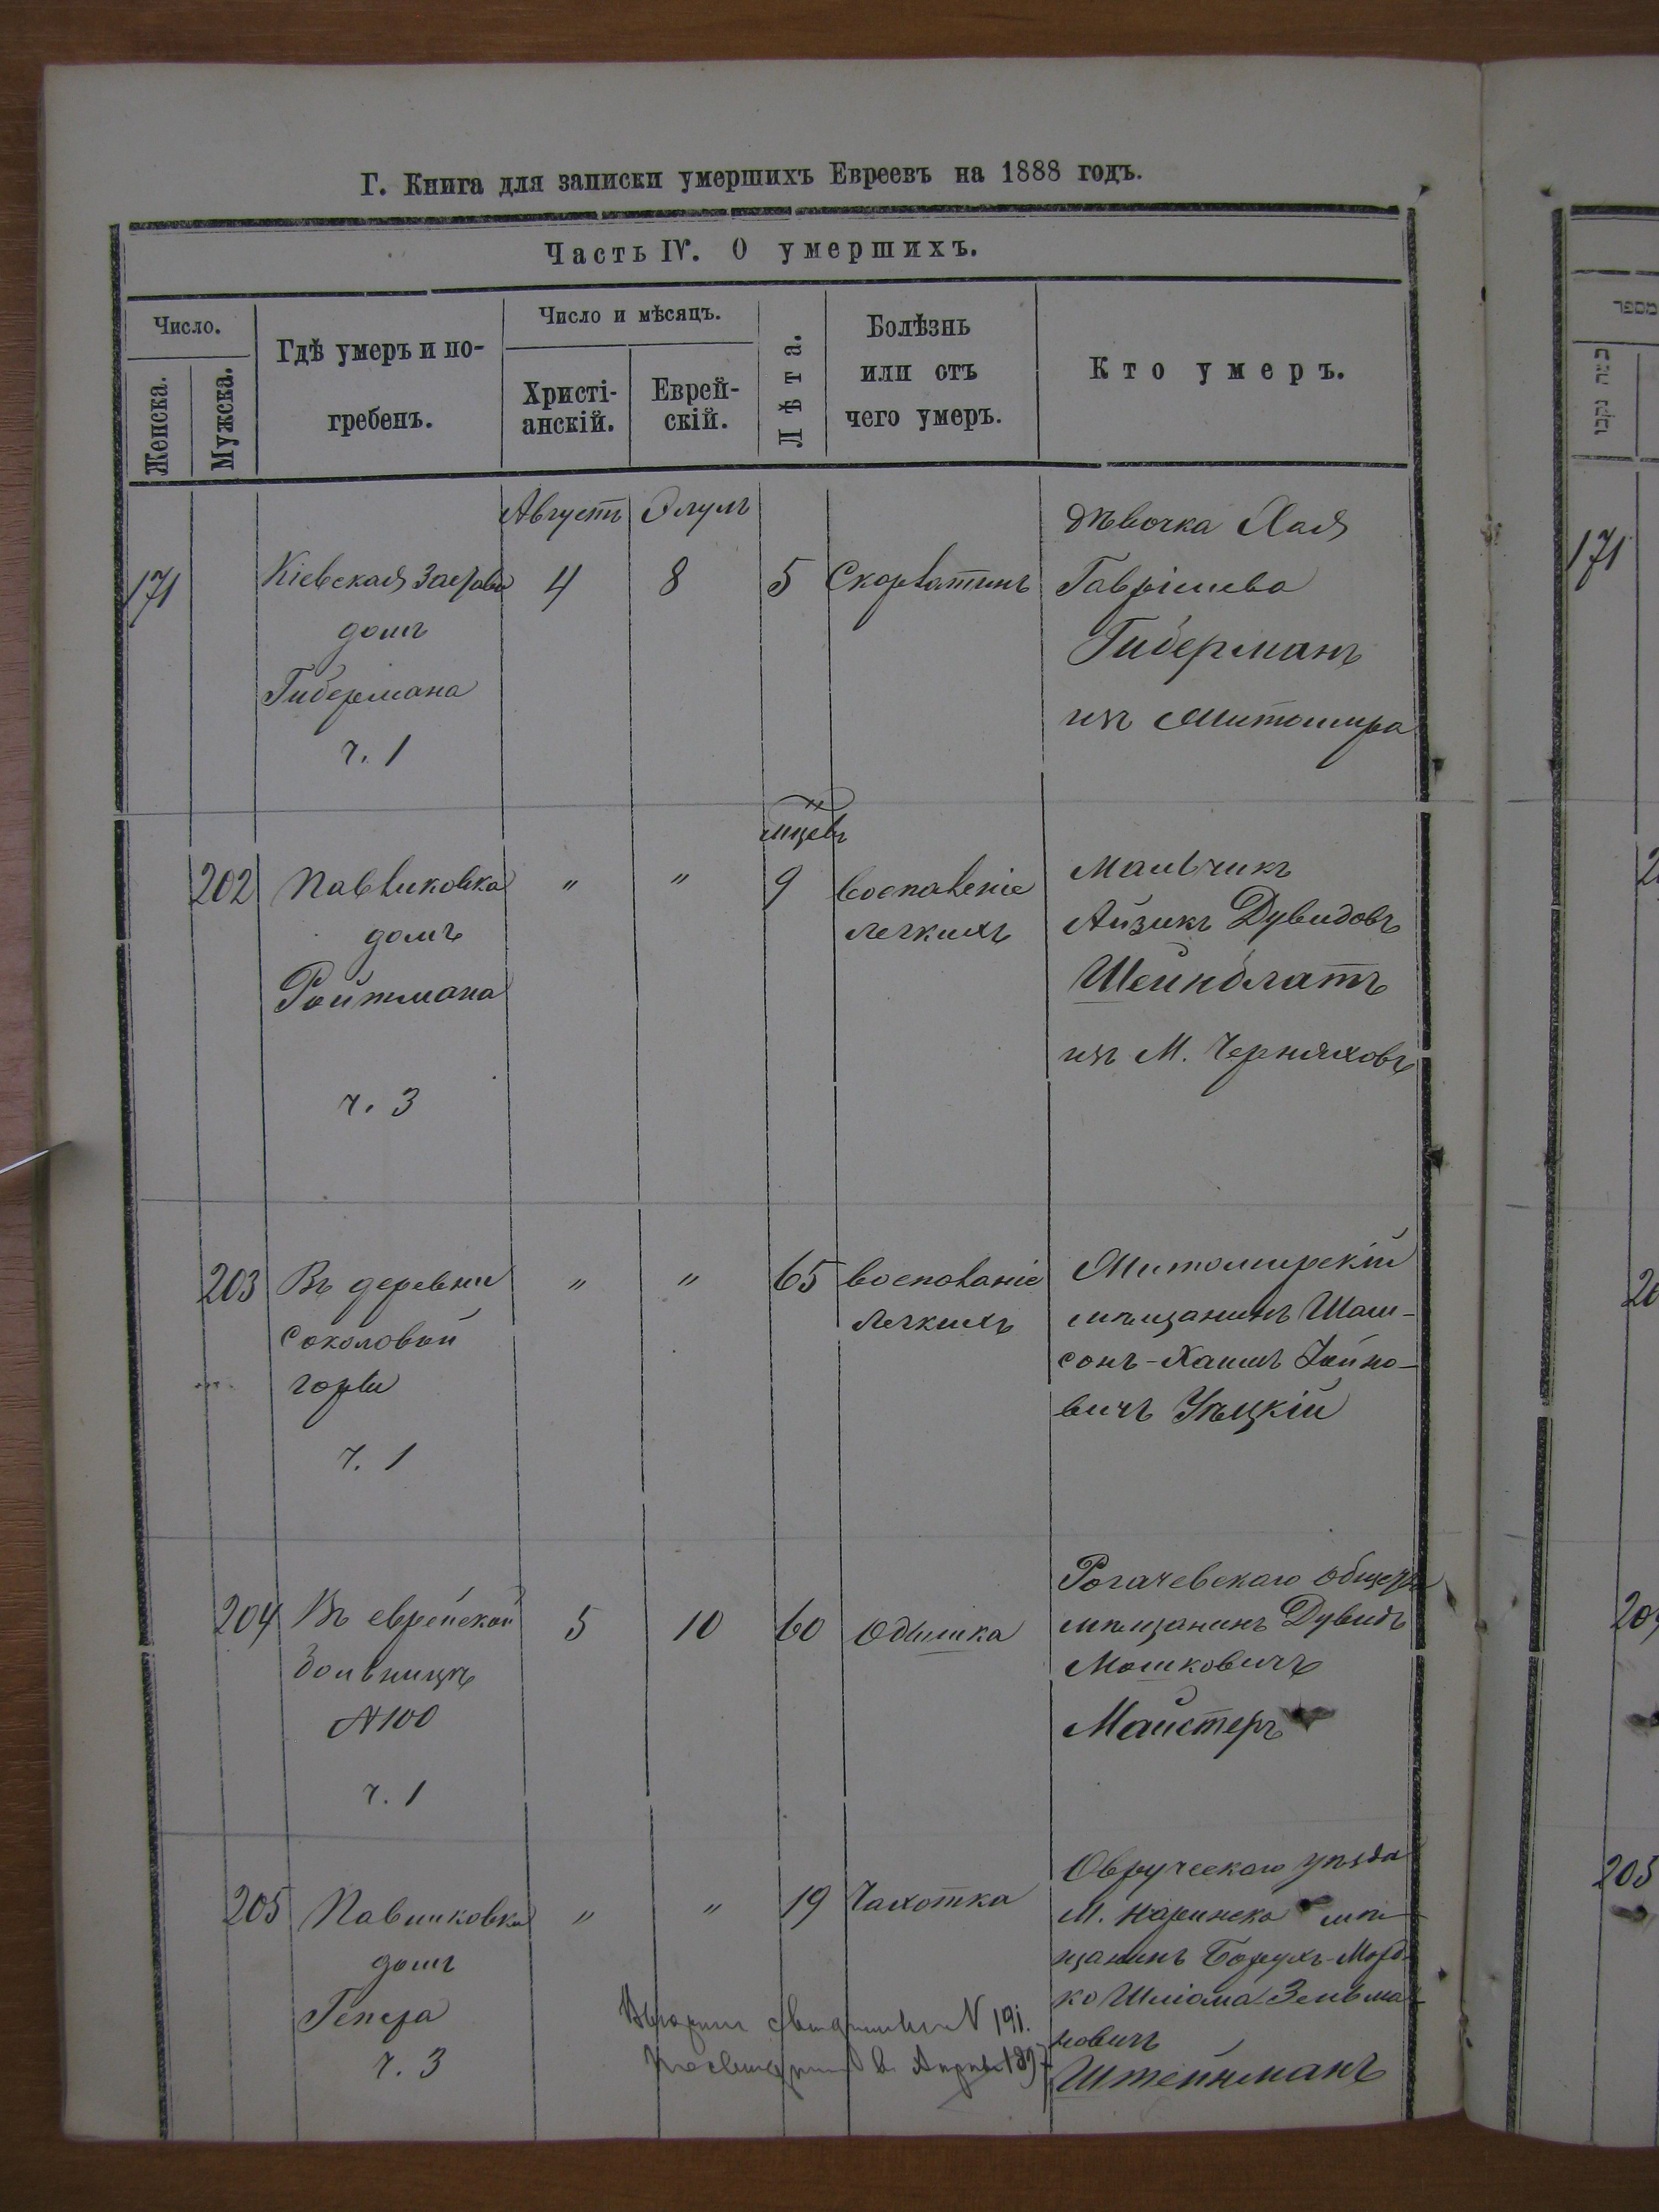 Г. Книга для записки умершихъ Евреевъ на 1888 годъ.
Часть IV. О умершихъ.
Число.
Женска.
Мужска.
Гдѣ умеръ и по-
гребенъ.
Число и мѣсяцъ.
Христі-
анскій.
Еврей-
скій.
Лѣта.
Болѣзнь
или отъ
чего умеръ.
Кто умеръ.
Августъ
Элулъ
171
Кіевская
домъ
Гибермана
ч. 1
4
8
5
Скорлатинъ
дѣвочка Хая
Гаврілева
Гиберманъ
изъ Житомира
202
Павликовка
домъ
Ройтмана
ч. 3
"
"
мцевъ
9
воспаленіе
легкихъ
Мальчикъ
Айзикъ Дувидовъ
Шейнблатъ
изъ М. Черняховъ
203
Въ деревни
Соколовой
горы
ч. 1
"
"
65
воспаланіе
легкихъ
Житомирскій
мѣщанинъ Шам-
сонъ-Хаимъ
вичъ
204
Въ еврейской
больницѣ
N 100
ч. 1
5
10
60
Одышка
Рогачевскаго
мѣщанинъ Дувидъ
Мошковичъ
Майстеръ
205
Павликовка
домъ
ч. 3
"
"
19
Чахотка
Овручскаго уѣзда
М. Наринска мѣ-
щанинъ Борухъ-Морд-
ко Шліома Зельма-
новичъ
Штейнманъ
N 191.
171
מספר
203